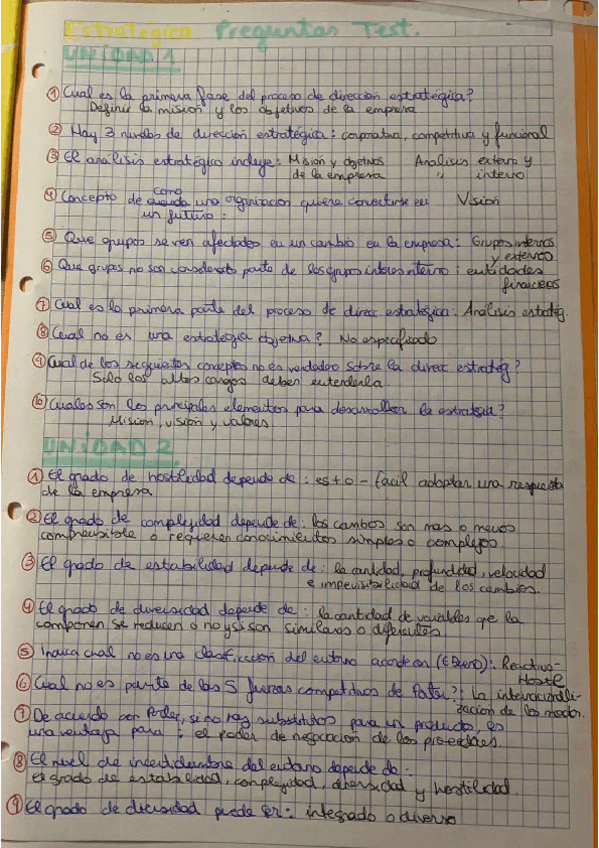 Estratégica Preguntas Test.
UNIDAD 1
① Cual es la primera fase del proceso de dirección estratégica?
Definir la misión y los objetivos de la empresa
② Hay 3 niveles de dirección estratégica: corporativa, competitiva y funcional
③ El análisis estratégico incluye: Misión y objetivos Analisis externo y
de la empresa " interno
④ Concepto de como una organización quiere convertirse en Visión
un futuro:
⑤ Que grupos se ven afectados en un cambio en la empresa: Grupos internos
y externos
⑥ Que grupos no son considerados parte de los grupos interes interno: entidades
financieras
⑦ Cual es la primera parte del proceso de direcc. estratégica: Análisis estratég.
⑧ Cual no es una estrategia objetiva? No especificado
⑨ Cual de los siguientes conceptos no es verdadero sobre la direcc. estratég?
Solo los altos cargos deben entenderla.
⑩ Cuales son los principales elementos para desarrollar la estrategia?
Misión, visión y valores.
UNIDAD 2
① El grado de hostilidad depende de: es + o - facil adoptar una respuesta
de la empresa
② El grado de complejidad depende de: los cambios son mas o menos
comprensible o requieren conocimientos simples o complejos
③ El grado de estabilidad depende de: la cantidad, profundidad, velocidad
e imprevisibilidad de los cambios.
④ El grado de diversidad depende de: la cantidad de variables que la
componen se reducen o no y si son similares o diferentes
⑤ Indica cual no es una clasificación del entorno acorde con (E Bueno): Reactivo-
Hostil
⑥ Cual no es parte de las 5 fuerzas competitivas de Porter?: La internacionali-
zacion de los
⑦ De acuerdo con Porter, si no hay substitutivos para un producto, es
una ventaja para: el poder de negociación de los proveedores.
⑧ El nivel de incertidumbre del entorno depende de:
el grado de estabilidad, complejidad, diversidad y hostilidad.
⑨ El grado de diversidad puede ser: integrado o diverso